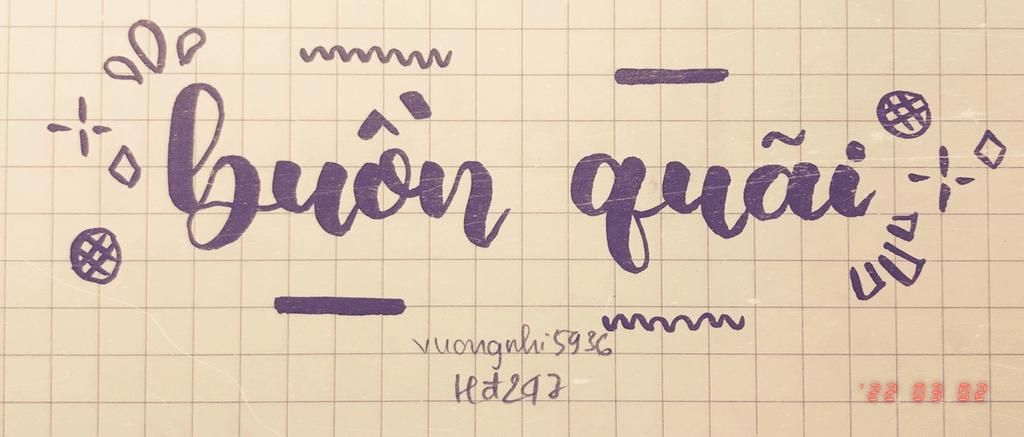 buồn quãi
vuongnhi5936
Hđ297
'22 03 02